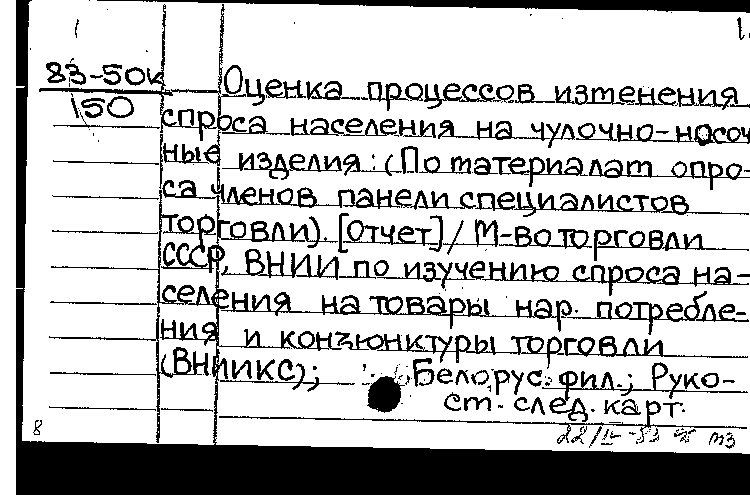 1.
83-50к
150
Оценка процессов изменения
спроса населения на чулочно-носоч
ные изделия: (По материалам опро-
са членов панели специалистов
торговли). [Отчет] / М-во торговли
СССР, ВНИИ по изучению спроса на-
селения на товары нар. потребле-
ния и конъюнктуры торговли
(ВНИИКС); Белорус. фил.; Руко-
ст. след. карт.
8
22/IV-83